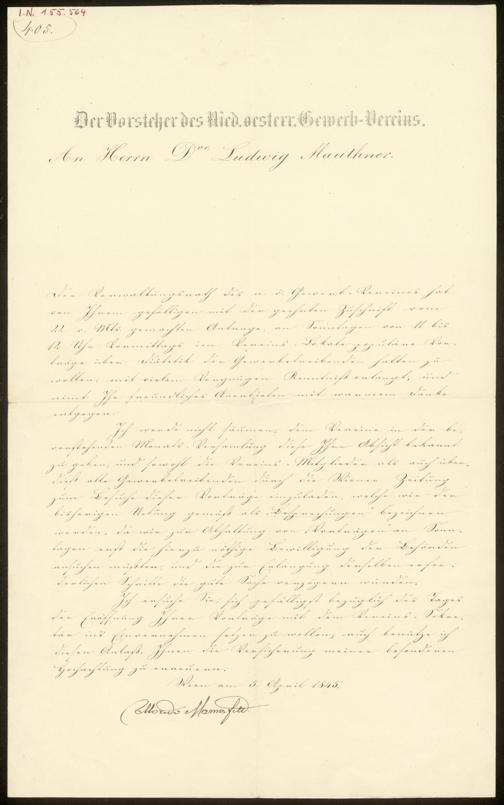 I.N. 155.564
405.
Der Vorsteher des Nied. oesterr. Gewerb-Vereins.
An Herrn Dor Ludwig Mauthner.
Der Verwaltungsrath des n. ö. Gewerb-Vereines hat
von Ihrem gefälligen mit der geehrten Zuschrift vom
22 v. Mts. gemachten Antrage, an Sonntagen von 11 bis
12 Uhr Vormittags im Vereins-Lokale populäre Vor-
träge über Diätetik der Gewerbetreibenden halten zu
wollen, mit vielem Vergnügen Kenntniß erlangt, und
nimt Ihr freundliches Anerbieten mit warmem Danke
entgegen.
Ich werde nicht säumen, dem Vereine in der be-
vorstehenden Monats-Versamlung diese Ihre Absicht bekannt
zu geben, und sowohl die Vereins-Mitglieder als auch über-
dieß alle Gewerbetreibenden durch die Wiener Zeitung
zum Besuche dieser Vorträge einzuladen, welche wir der
bisherigen Uebung gemäß als „Besprechungen" bezeichnen
werden, da wir zur Abhaltung von „Vorträgen" an Sonn-
tagen erst die hierzu nöthige Bewilligung der Behörden
ansuchen müßten, und die zur Erlangung derselben erfor-
derlichen Schritte die gute Sache verzögern würden.
Ich ersuche Sie, sich gefälligst bezüglich des Tages
der Eröffnung Ihrer Vorträge mit dem Vereins-Sekre-
tär ins Einvernehmen setzen zu wollen, auch benütze ich
diesen Anlaß, Ihnen die Versicherung meiner besonderen
Hochachtung zu erneuern.
Wien am 3. April 1845.